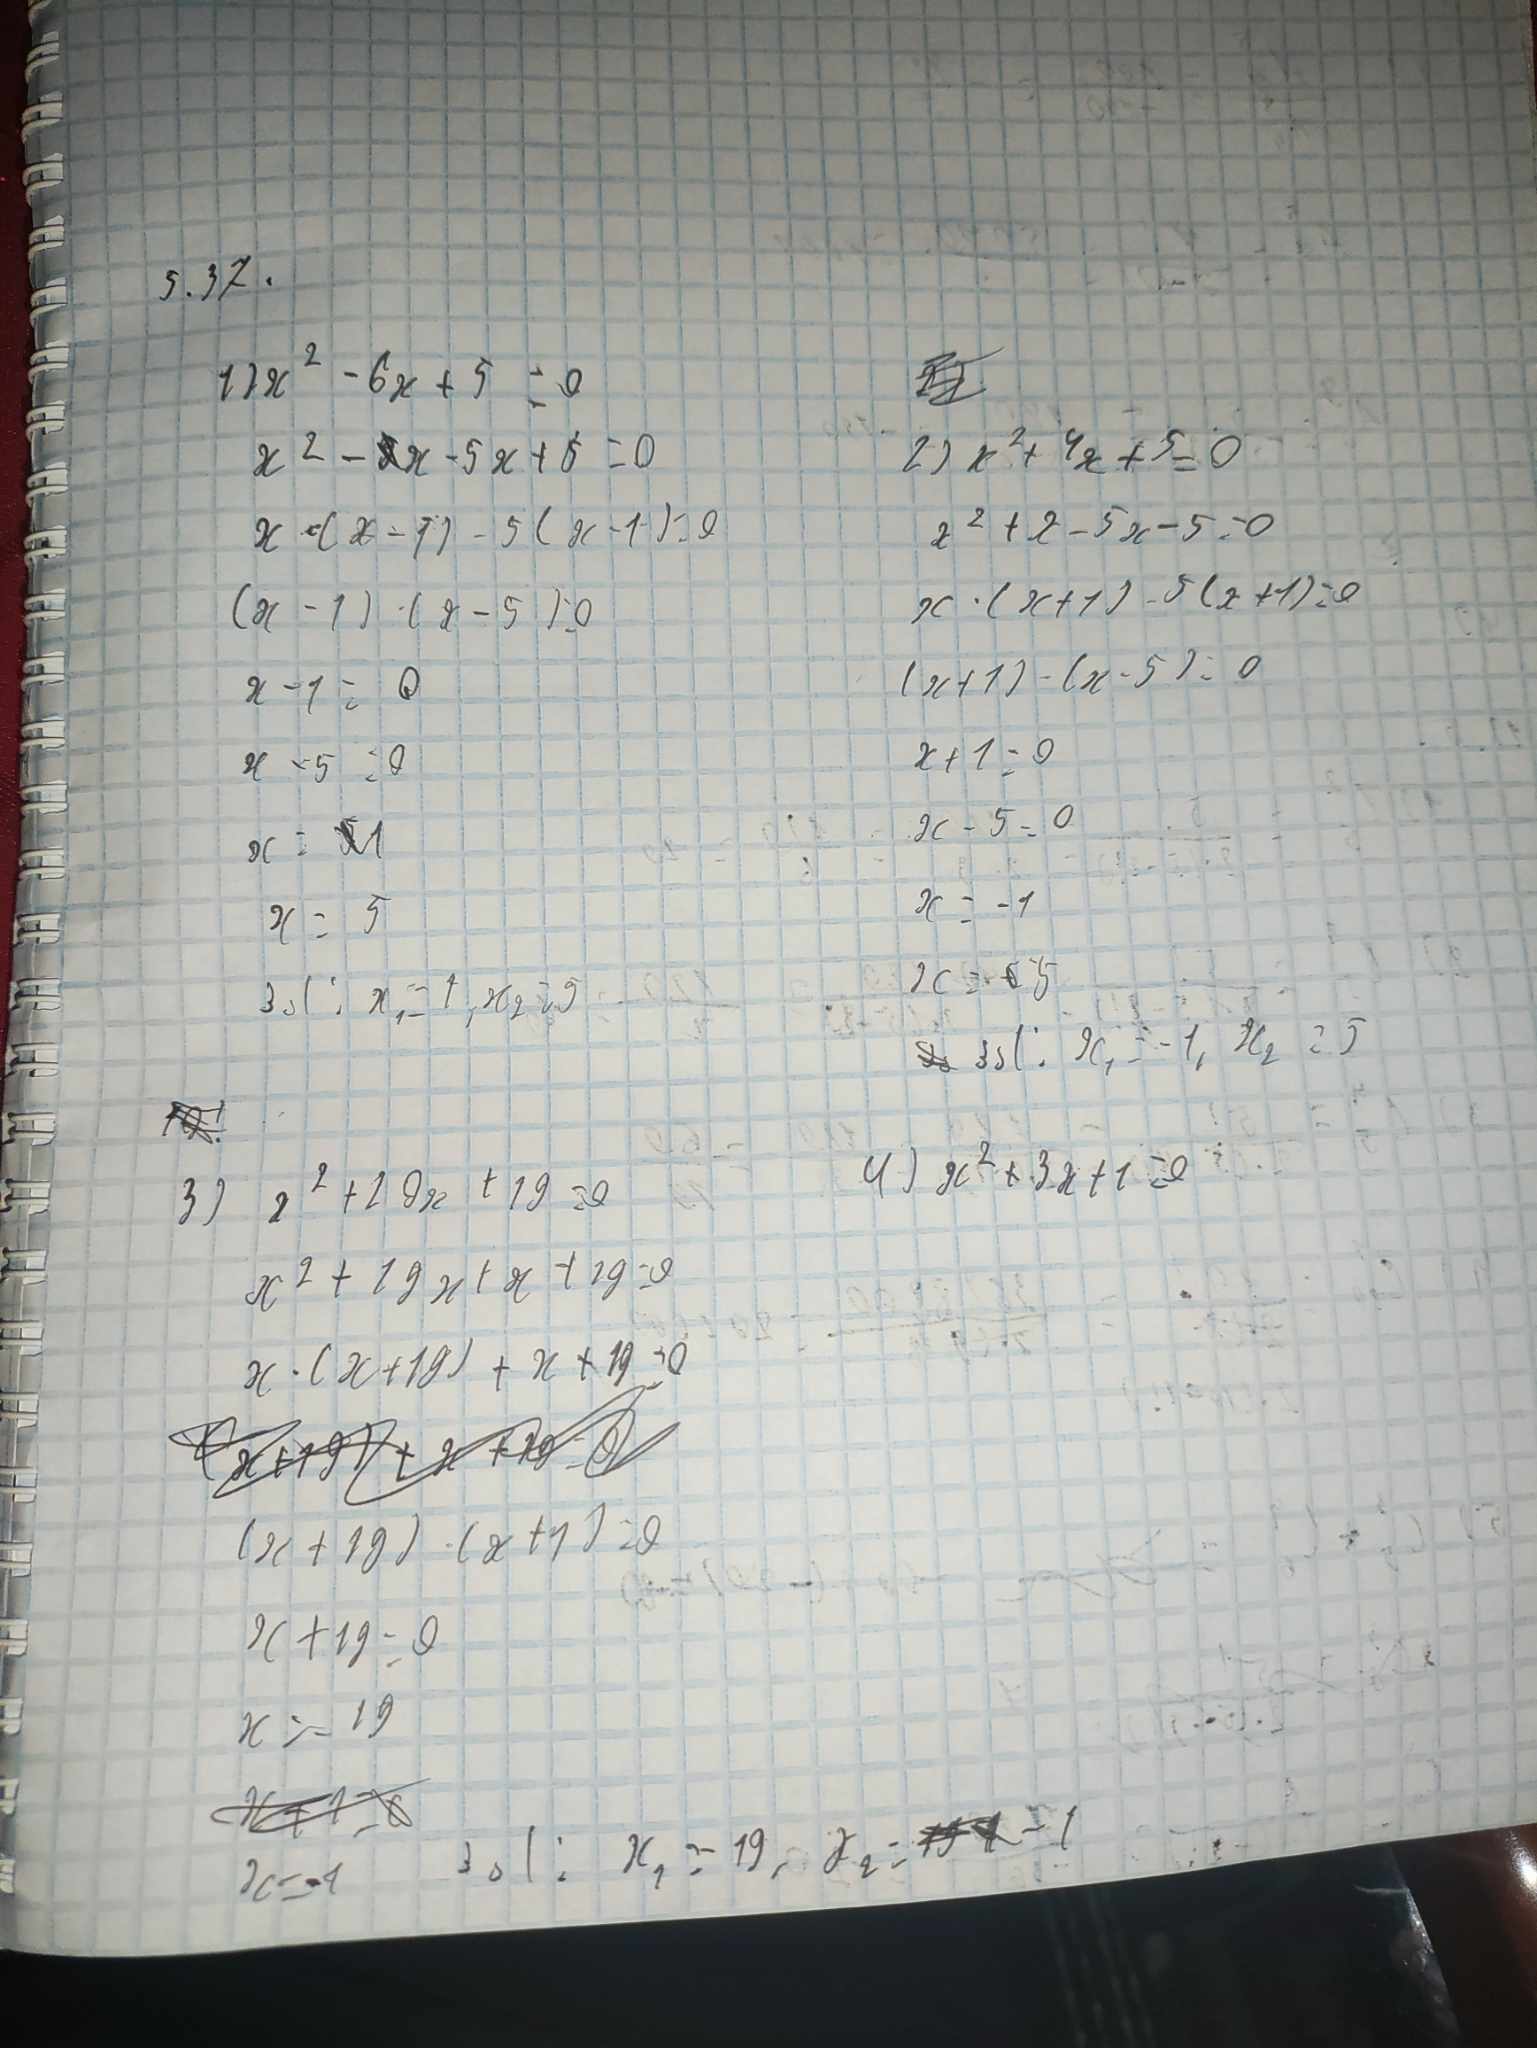 5.37.
1) x² - 6x + 5 = 0
x² - x - 5x + 5 = 0
x · (x - 1) - 5 (x - 1) = 0
(x - 1) · (x - 5) = 0
x - 1 = 0
x - 5 = 0
x = 1
x = 5
x₁ = 1, x₂ = 5
2) x² + 4x + 5 = 0
x² + x - 5x - 5 = 0
x · (x + 1) - 5 (x + 1) = 0
(x + 1) - (x - 5) = 0
x + 1 = 0
x - 5 = 0
x = -1
x = 5
x₁ = -1, x₂ = 5
3) x² + 20x + 19 = 0
x² + 19x + x + 19 = 0
x · (x + 19) + x + 19 = 0
(x + 19) + x + 19 = 0
(x + 19) · (x + 1) = 0
x + 19 = 0
x = -19
x + 1 = 0
x = -1
x₁ = -19, x₂ = -1
4) x² + 3x + 1 = 0